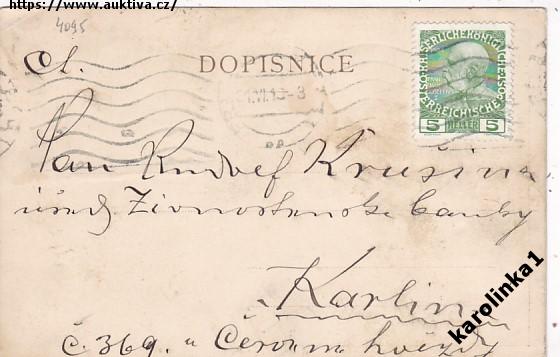 https://www.auktiva.cz/
4095
Cl.
DOPISNICE
KAISERLICHE KÖNIGLICHE ÖSTERREICHISCHE
5 HELLER 5
Pan Rudolf Krusina
úřed Živnostenské banky
Karlin
č. 369. u Červené hvězdy
karolinka1